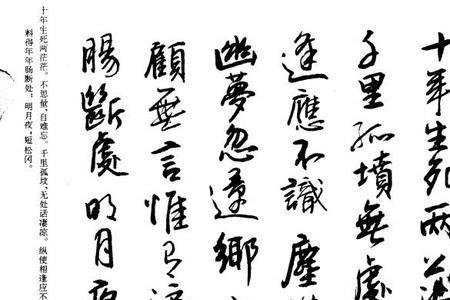 十年生死两茫
千里孤墳無處
逢應不識塵
幽夢忽還鄉
顧無言惟有淚
腸斷處明月夜
十年生死两茫茫。不思量、自难忘。千里孤坟、无处话凄凉。纵使相逢应不
料得年年肠断处：明月夜，短松冈。